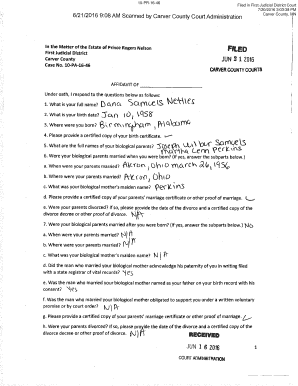 10-PR-16-46
Filed in First Judicial District Court
7/26/2016 3:03:38 PM
Carver County, MN
6/21/2016 9:08 AM Scanned by Carver County Court Administration
In the Matter of the Estate of Prince Rogers Nelson
First Judicial District
Carver County
Case No. 10-PA-16-46
FILED
JUN 21 2016
CARVER COUNTY COURTS
AFFIDAVIT OF
Under oath, I respond to the questions below as follows:
1. What is your full name? Dana Samuels Nettles
2. What is your birth date? Jan 10, 1958
3. Where were you born? Birmingham, Alabama
4. Please provide a certified copy of your birth certificate.
5. What are the full names of your biological parents? Joseph Wilbur Samuels
Martha Lenn Perkins
6. Were your biological parents married when you were born? (If yes, answer the subparts below.)
a. When were your parents married? Akron, Ohio March 26, 1956
b. Where were your parents married? Akron, Ohio
c. What was your biological mother's maiden name? Perkins
d. Please provide a certified copy of your parents' marriage certificate or other proof of marriage.
e. Were your parents divorced? If so, please provide the date of the divorce and a certified copy of the
divorce decree or other proof of divorce. N/A
7. Were your biological parents married after you were born? (If yes, answer the subparts below.) No
a. When were your parents married? N/A
b. Where were your parents married? N/A
c. What was your biological mother's maiden name? N/A
d. Did the man who married your biological mother acknowledge his paternity of you in writing filed
with a state registrar of vital records? Yes
e. Was the man who married your biological mother named as your father on your birth record with his
consent? Yes
f. Was the man who married your biological mother obligated to support you under a written voluntary
promise or by court order? N/A
g. Please provide a certified copy of your parents' marriage certificate or other proof of marriage.
h. Were your parents divorced? If so, please provide the date of the divorce and a certified copy of the
divorce decree or other proof of divorce. N/A
RECEIVED
JUN 16 2016
COURT ADMINISTRATION
1